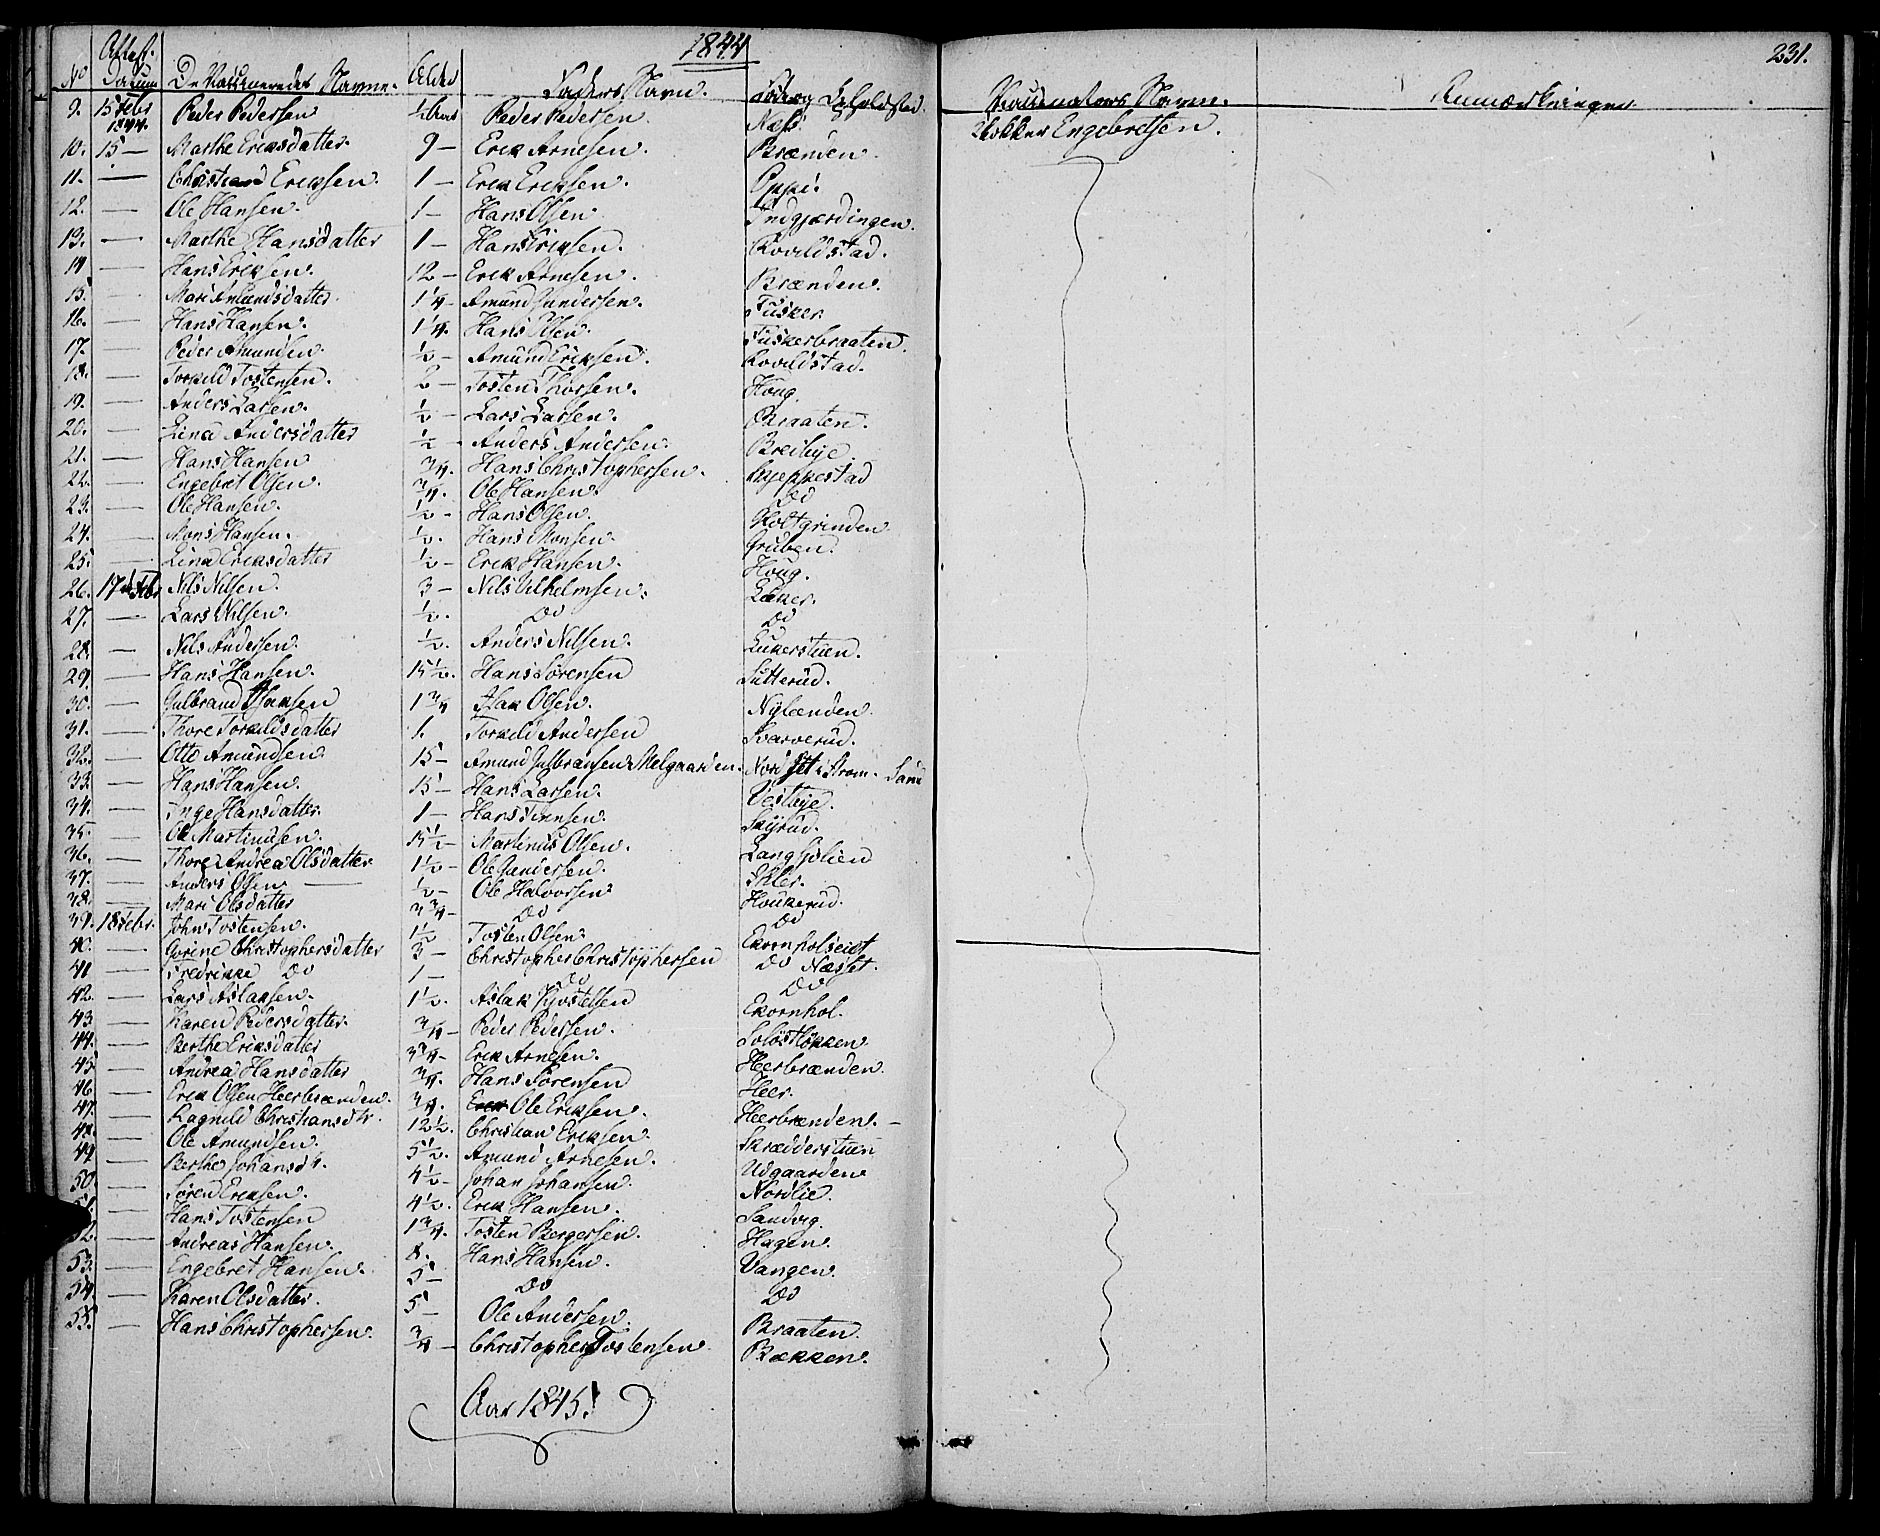 1844
231.
No Attest. Datum De Vaccineredes Navne. Alder Faders Navn. Føde og Opholdsted. Vaccinators Navn. Anmærkninger
9. 15 Febr 1844. Peder Pedersen ½ Aar Peder Pedersen. Næs. Klokker Engebretsen.
10. 15 — Marthe Eriksdatter. 9 — Erik Arnesen. Brænden.
11. — Christian Eriksen. 1 — Erik Eriksen.
12. — Ole Hansen. 1 — Hans Olsen. Indgjærdingen.
13. — Marthe Hansdatter 1 — Hans Eriksen. Rovildstad.
14 — Hans Eriksen. 12 — Erik Arnesen. Brænden.
15. — Mari Amundsdatter. 1¼ — Amund Gundersen. Fusker.
16. — Hans Hansen. 1¼. Hans Olsen. Fuskerbraaten.
17. — Peder Amundsen. ½ — Amund Eriksen. Rovildstad.
18. — Torkild Tostensen. 2 — Tosten Thorsen. Houg.
19. — Anders Larsen. ½ — Lars Larsen. Braaten.
20. — Lina Andersdatter ½ — Anders Andersen. Breibye.
21. — Hans Hansen ¾. Hans Christophersen. Gjeppestad
22. — Engebret Olsen. ¾. Ole Hansen. Do
23. — Ole Hansen. ½ — Hans Olsen. Holtgrinden
24. — Mons Hansen. ½. Hans Monsen. Gruben.
25. — Lina Eriksdatter ½ — Erik Hansen. Houg.
26. 17de Febr Nils Nilsen. 3 — Nils Vilhelmsen. Luker.
27. — Lars Nilsen. ½. Do Do
28. — Nils Andersen. ½. Anders Nilsen. Lukerstuen.
29. — Hans Hansen. 15½. Hans Sørensen Sutterud.
30. — Gulbrand Aslaksen 1¾ Aslak Olsen. Nylænden.
31. — Thore Torkildsdatter 1. Torkild Andersen Svarverud.
32. — Otte Amundsen 15 — Amund Gulbransen Melgaarden. Nordset i Strøm. Sand
33. — Hans Hansen. 15 — Hans Larsen. Vestbye.
34. — Inge Hansdatter. 1 — Hans Finnsen. Skyrud.
35. — Ole Martinusen. 15½ — Martinus Olsen. Langsjølien
36. — Thore Andrea Olsdatter 1½ — Ole Gundersen. Ihler.
37. — Anders Olsen ½ — Ole Halvorsen. Houkerud.
38. — Mari Olsdatter 3¾ — Do Do
39. 18 Febr. John Tostensen. 1½ Tosten Olsen. Ekornholseiet
40. — Gorine Christophersdatter 3 — Christopher Christophersen Do Næsset.
41 — Fredrikke Do 1 — Do Do
42. — Lars Aslaksen. 1½. Aslak Kjostelsen Ekornhol.
43. — Karen Pedersdatter. ¾ — Peder Pedersen. Soløstløkken
44. — Berthe Eriksdatter 3¾ — Erik Arnesen. Heerbrænden.
45 — Andrea Hansdatter ¾. Hans Sørensen Heer.
46. — Erik Olsen Heerbrænden. ¾. Ole Eriksen. Heerbrænden. —
47. — Ragnild Christiansdtr. 12½. Christian Eriksen. Skrædderstuen
48. — Ole Amundsen. 5½. Amund Arnesen. Udgaarden
49 — Berthe Johansdtr. 4½ — Johan Johansen. Nordlie.
50. — Søren Eriksen. 4½. Erik Hansen. Sandvig.
51. — Hans Tostensen 1¾. Tosten Bergersen. Hagen.
52. — Andreas Hansen. 8. Hans Hansen. Vangen.
53. — Engebret Hansen. 5 — Do Do
54. — Karen Olsdatter. 5 — Ole Andersen. Braaten.
55. — Hans Christophersen. ¾ — Christopher Tostensen. Bækken.
Aar 1845.